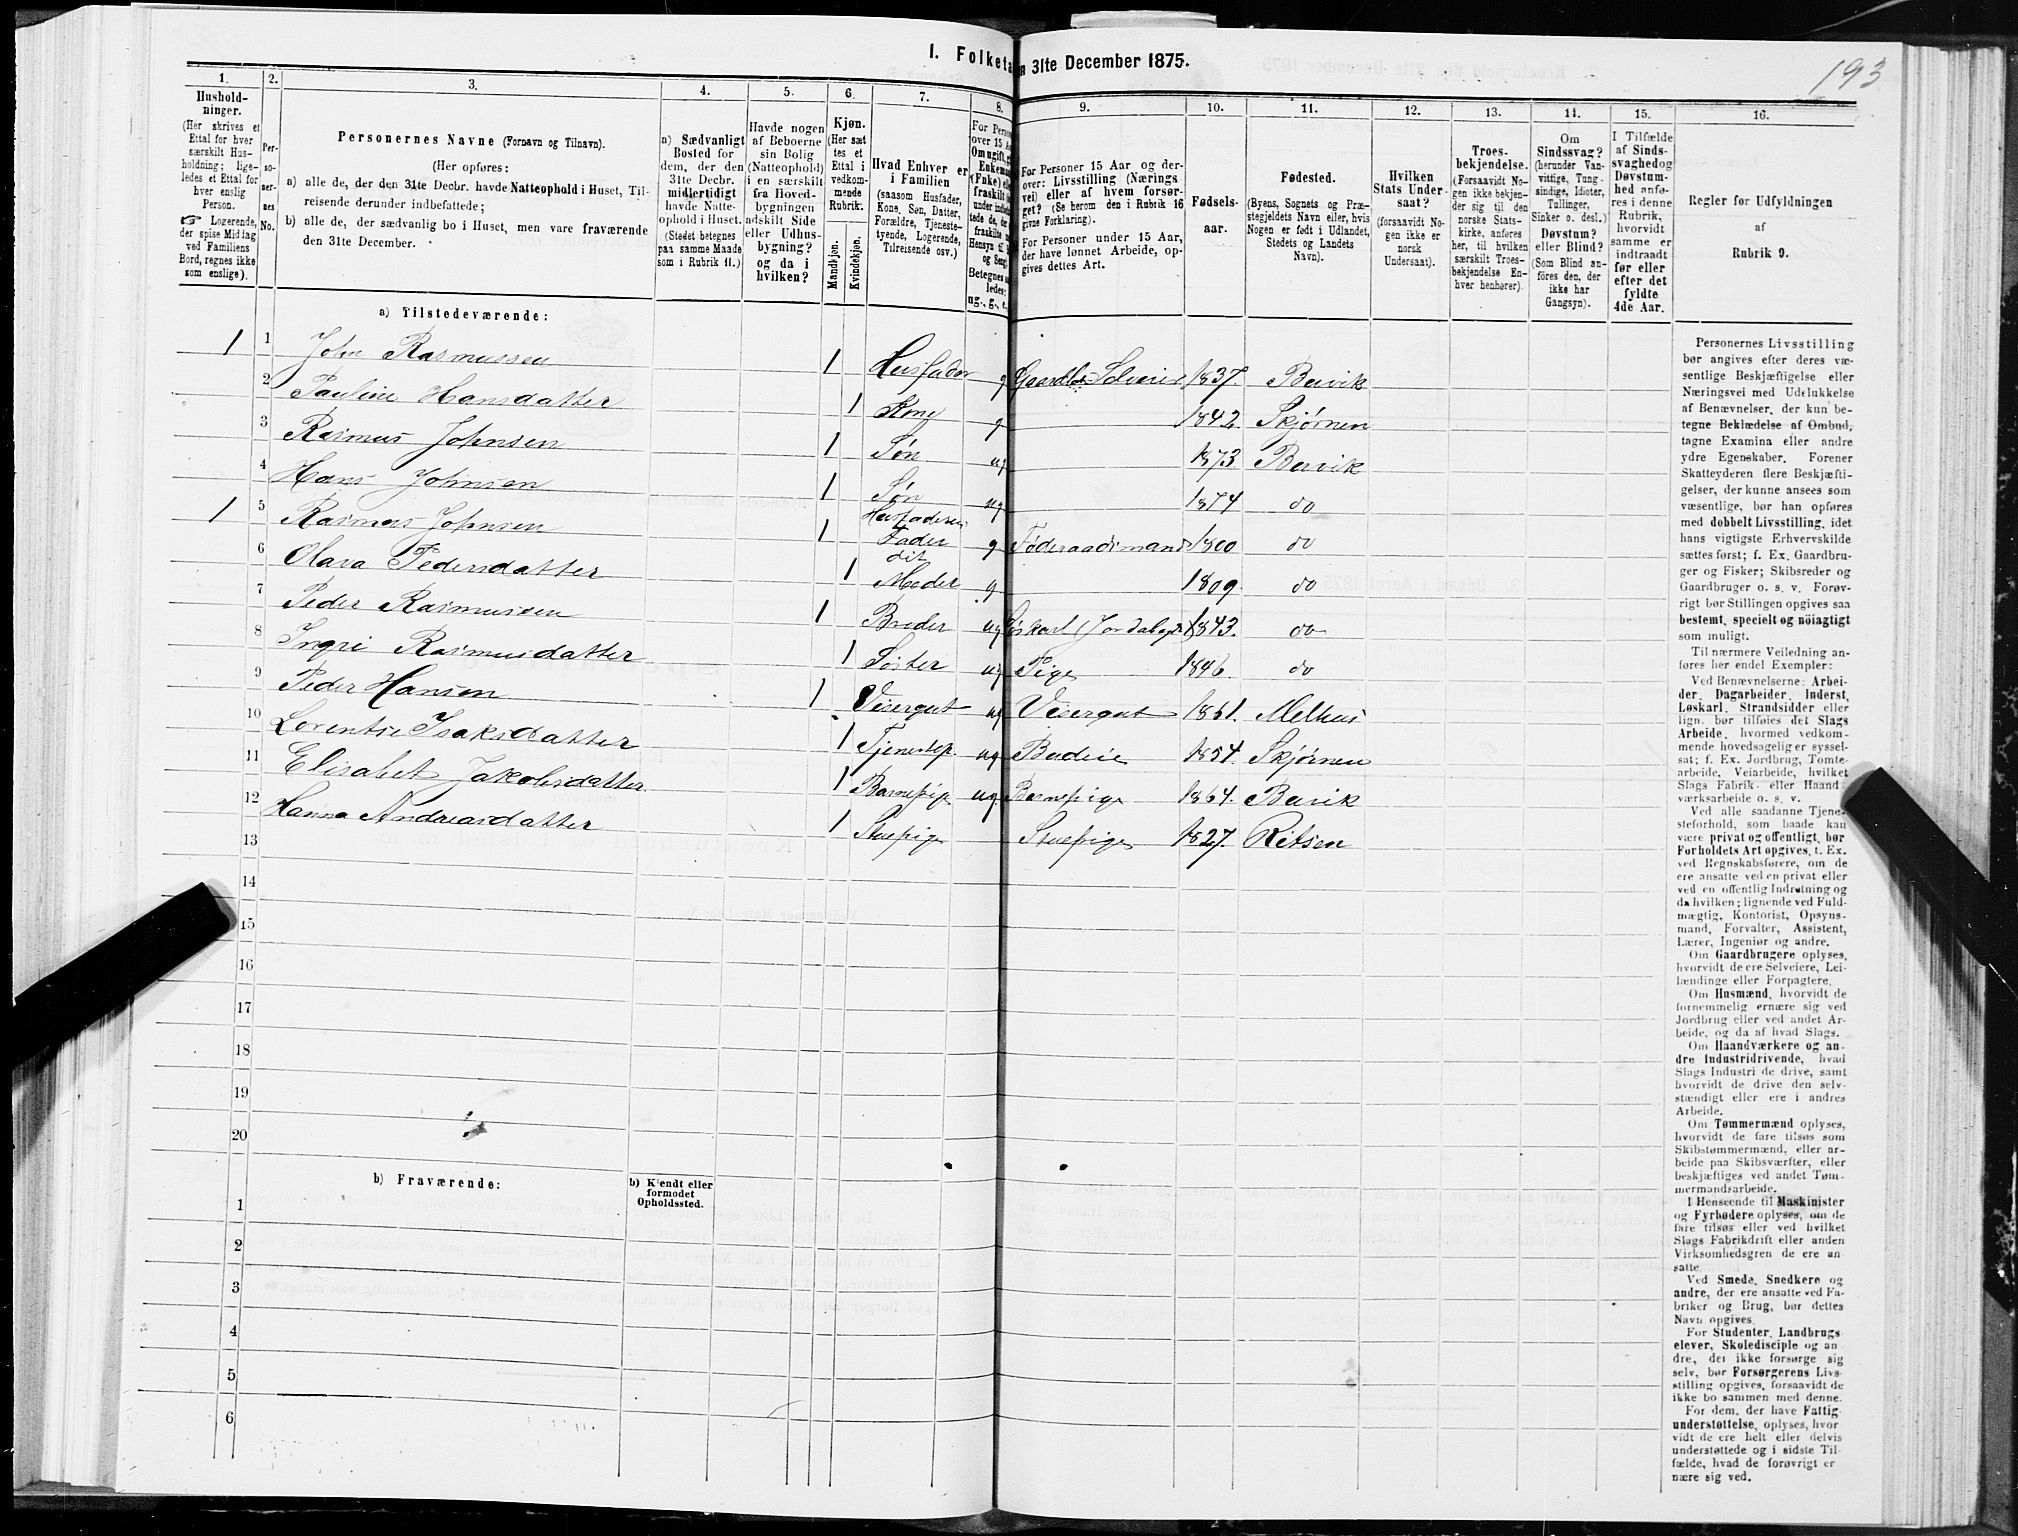 193
I. Folketæ
n 31te December 1875.
1. 2. 3. 4. 5. 6. 7. 8. 9. 10. 11. 12. 13. 14. 15. 16.
Hushold-
ninger.
(Her skrives et
Ettal for hver
særskilt Hus-
holdning; lige-
ledes et Ettal for
hver enslig
Person.
☞ Logerende,
der spise Middag
ved Familiens
Bord, regnes ikke
som enslige).
Per-
so-
ner-
nes
No.
Personernes Navne (Fornavn og Tilnavn).
(Her opføres:
a) alle de, der den 31te Decbr. havde Natteophold i Huset, Til-
reisende derunder indbefattede;
b) alle de, der sædvanlig bo i Huset, men vare fraværende
den 31te December.
a) Sædvanligt
Bosted for
dem, der den
31te Decbr.
midlertidigt
havde Natte-
ophold i Huset.
(Stedet betegnes
paa samme Maade
som i Rubrik 11.)
Havde nogen
af Beboerne
sin Bolig
(Natteophold)
i en særskilt
fra Hoved-
bygningen
adskilt Side
eller Udhus-
bygning?
og da i
hvilken?
Kjøn.
(Her sæt
tes et
Ettal i
vedkom-
mende
Rubrik.
Mandkjøn.
Kvindekjøn.
Hvad Enhver er
i Familien
(saasom Husfader,
Kone, Søn, Datter,
Forældre, Tjeneste-
tyende, Logerende,
Tilreisende osv.)
For Perso
over 15 A
Om ugift, g
Enkema
(Fnke) el
fraskilt
under indb
tede de, d
fraskilte
Hensyn til
og Seng
Betegnes s
ledes:
ug., g., e.
For Personer 15 Aar og der-
over: Livsstilling (Nærings
vei) eller af hvem forsør-
get? (Se herom den i Rubrik 16
givne Forklaring).
For Personer under 15 Aar,
der have lønnet Arbeide, op-
gives dettes Art.
Fødsels-
aar.
Fødested.
(Byens, Sognets og Præ-
stegjeldets Navn eller, hvis
Nogen er født i Udlandet,
Stedets og Landets
Navn).
Hvilken
Stats Under-
saat?
(forsaavidt No-
gen ikke er
norsk
Undersaat).
Troes-
bekjendelse.
(Forsaavidt No-
gen ikke bekjen-
der sig til den
norske Stats-
kirke, anføres
her, til hvilken
særskilt Troes-
bekjendelse En-
hver henhører).
Om
Sindssvag?
(herunder Van-
vittige, Tung-
sindige, Idioter,
Tullinger,
Sinker o. desl.)
Døvstum?
eller Blind?
(Som Blind an-
føres den, der
ikke har
Gangsyn).
I Tilfælde
af Sinds-
svaghedog
Døvstum-
hed anfø-
res i denne
Rubrik,
hvorvidt
samme er
indtraadt
før eller
efter det
fyldte
4de Aar.
Regler for Udfyldningen
af
Rubrik 9.
a) Tilstedeværende:
1 1 John Rasmussen 1 Husfader g Gaardbr Selveier 1837. Bævik
2 Pauline Hansdatter 1 Kone g 1842 Skjørnen
3 Rasmus Johnsen 1 Søn ug 1873 Bævik
4 Hans Johnsen 1 Søn ug 1874 do
1 5 Rasmus Johnsen 1 Husfaderen Fader g Føderaadsmand 1800 do
6 Olava Pedersdatter 1 dit Moder g 1809. do
7 Peder Rasmussen 1 Broder ug Løskarl (Jordabeyde) 1843. do
8 Ingri Rasmusdatter 1 Søster ug Pige 1846. do
9 Peder Hansen 1 Visergut ug Visergut 1861. Melhus
10 Lorentse Isaksdatter 1 Tjenestep. ug Budeie 1854. Skjørnen
11 Elisabet Jakobsdatter 1 Barnepige ug Barnepige 1864. Bævik
12 Hanna Andreasdatter 1 Stuepige Stuepige 1827. Ritsen
13
14
15
16
17
18
19
20
b) Fraværende:
b) Kjendt eller
formodet
Opholdssted.
1
2
3
4
5
6
Personernes Livsstilling
bør angives efter deres væ-
sentlige Beskjæftigelse eller
Næringsvei med Udelukkelse
af Benævnelser, der kun be-
tegne Beklædelse af Ombud,
tagne Examina eller andre
ydre Egenskaber. Forener
Skatteyderen flere Beskjæfti-
gelser, der kunne ansees som
væsentlige, bør han opføres
med dobbelt Livsstilling, idet
hans vigtigste Erhvervskilde
sættes først; f. Ex. Gaardbru-
ger og Fisker; Skibsreder og
Gaardbruger o. s. v. Forøv-
rigt bør Stillingen opgives saa
bestemt, specielt og nöiagtigt
som muligt.
Til nærmere Veiledning an-
føres her endel Exempler:
Ved Benævnelserne: Arbei-
der, Dagarbeider, Inderst,
Løskarl, Strandsidder eller
lign. bør tilføies det Slags
Arbeide, hvormed vedkom-
mende hovedsagelig er syssel-
sat; f. Ex. Jordbrug, Tomte-
arbeide, Veiarbeide, hvilket
Slags Fabrik- eller Haand-
værksarbeide o. s. v.
Ved alle saadanne Tjene-
steforhold, som baade kan
være privat og offentligt, bør
Forholdets Art opgives, f. Ex.
ved Regnskabsførere, om de
ere ansatte ved en privat eller
ved en offentlig Indretning og
da hvilken; lignende ved Fuld-
mægtig, Kontorist, Opsyns-
mand, Forvalter, Assistent,
Lærer, Ingeniør og andre.
Om Gaardbrugere oplyses,
hvorvidt de ere Selveiere, Lei-
lændinge eller Forpagtere.
Om Husmænd, hvorvidt de
fornemmelig ernære sig ved
Jordbrug eller ved andet Ar-
beide, og da af hvad Slags.
Om Haandværkere og an-
dre Industridrivende, hvad
Slags Industri de drive, samt
hvorvidt de drive den selv-
stændigt eller ere i andres
Arbeide.
Om Tømmermænd oplyses,
hvorvidt de fare tilsøs som
Skibstømmermænd, eller ar-
beide paa Skibsværfter, eller
beskjæftiges ved andet Tøm-
mermandsarbeide.
I Henseende til Maskinister
og Fyrbødere oplyses, om de
fare tilsøs eller ved hvilket
Slags Fabrikdrift eller anden
Virksomhedsgren de ere an-
satte.
Ved Smede, Snedkere og
andre, der ere ansatte ved Fa-
briker og Brug, bør dettes
Navn opgives.
For Studenter, Landbrugs-
elever, Skoledisciple og an-
dre, der ikke forsørge sig
selv, bør Forsørgerens Livs-
stilling opgives, forsaavidt de
ikke bo sammen med denne.
For dem, der have Fattig-
understøttelse, oplyses, hvor-
vidt de ere helt eller delvis
understøttede og i sidste Til-
fælde, hvad de forøvrigt er
nære sig ved.